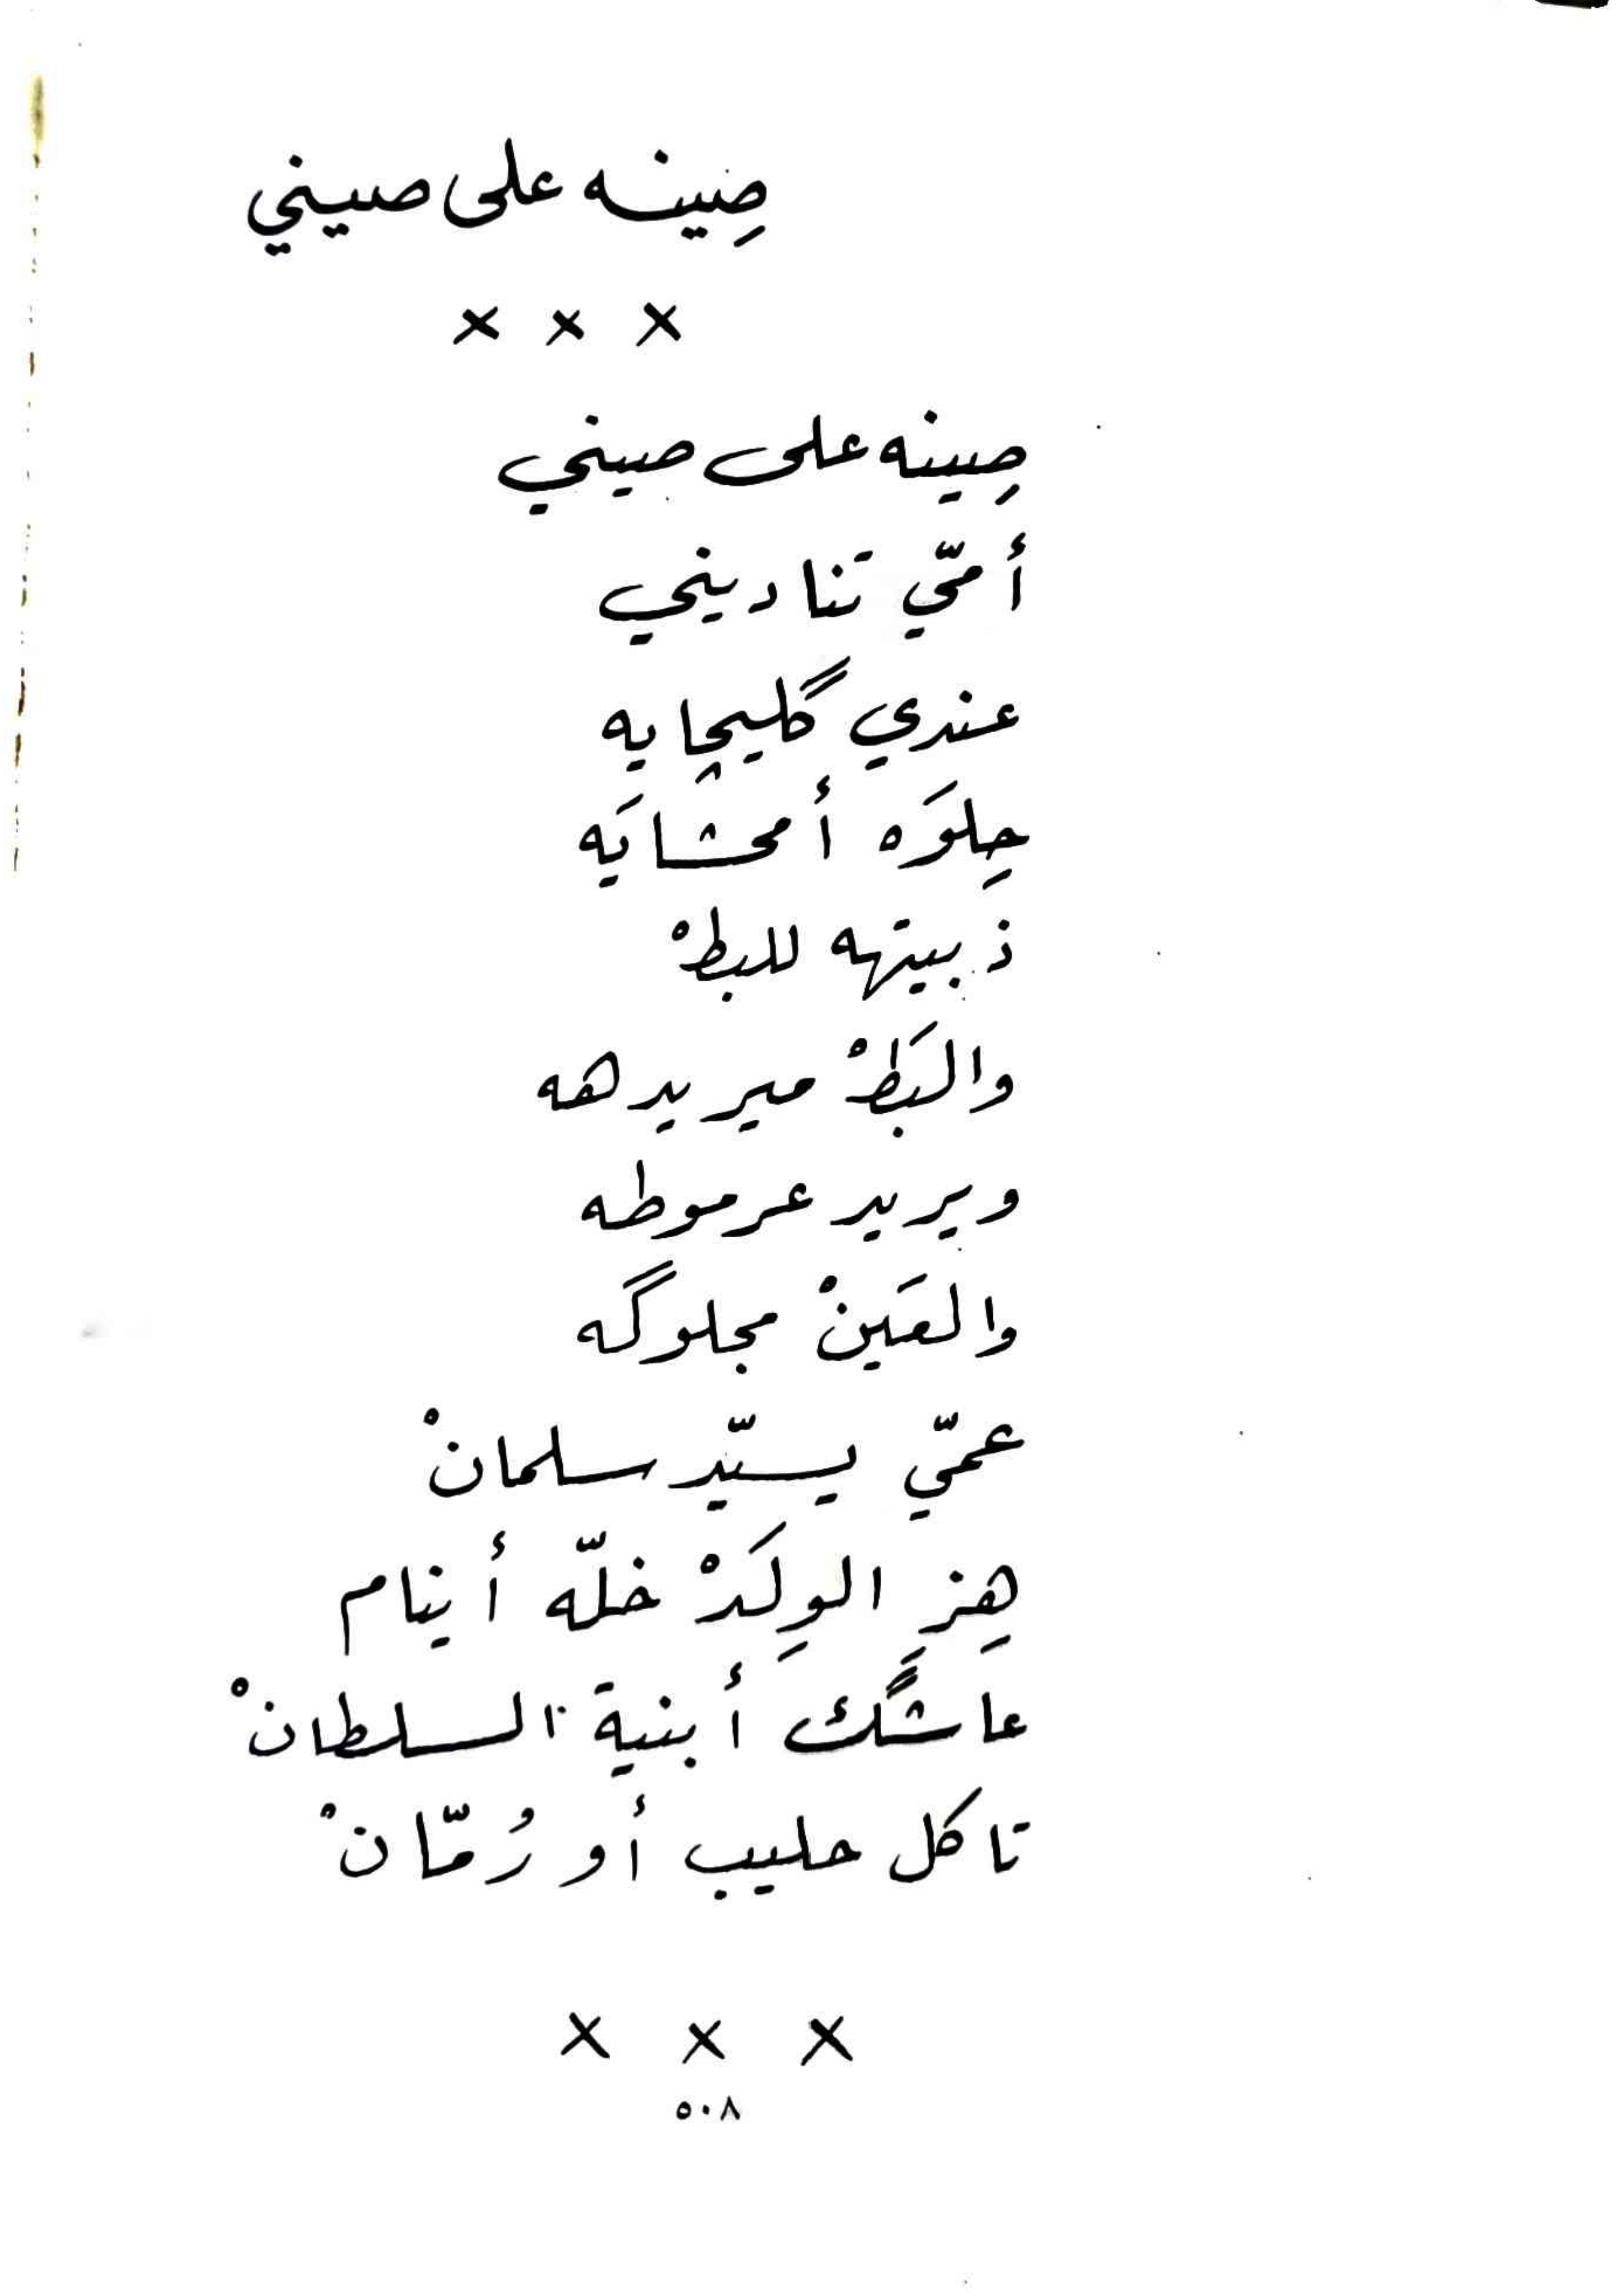 صِينه على صيني
× × ×
صِينه على صيني
أمّي تناديني
عندي گليچايه
حِلوَه أمحشايَه
ذبيتهه للبطْ
والبَطْ ميريدهه
ويريد عرموطه
والعَينْ مجلوگه
عمّي يسيّد سلمانْ
هِز الوِلَدْ خلّه أينام
عاشگَك أبنية السلطانْ
تاكل حليب أو رُمّانْ
× × ×
٥٠٨